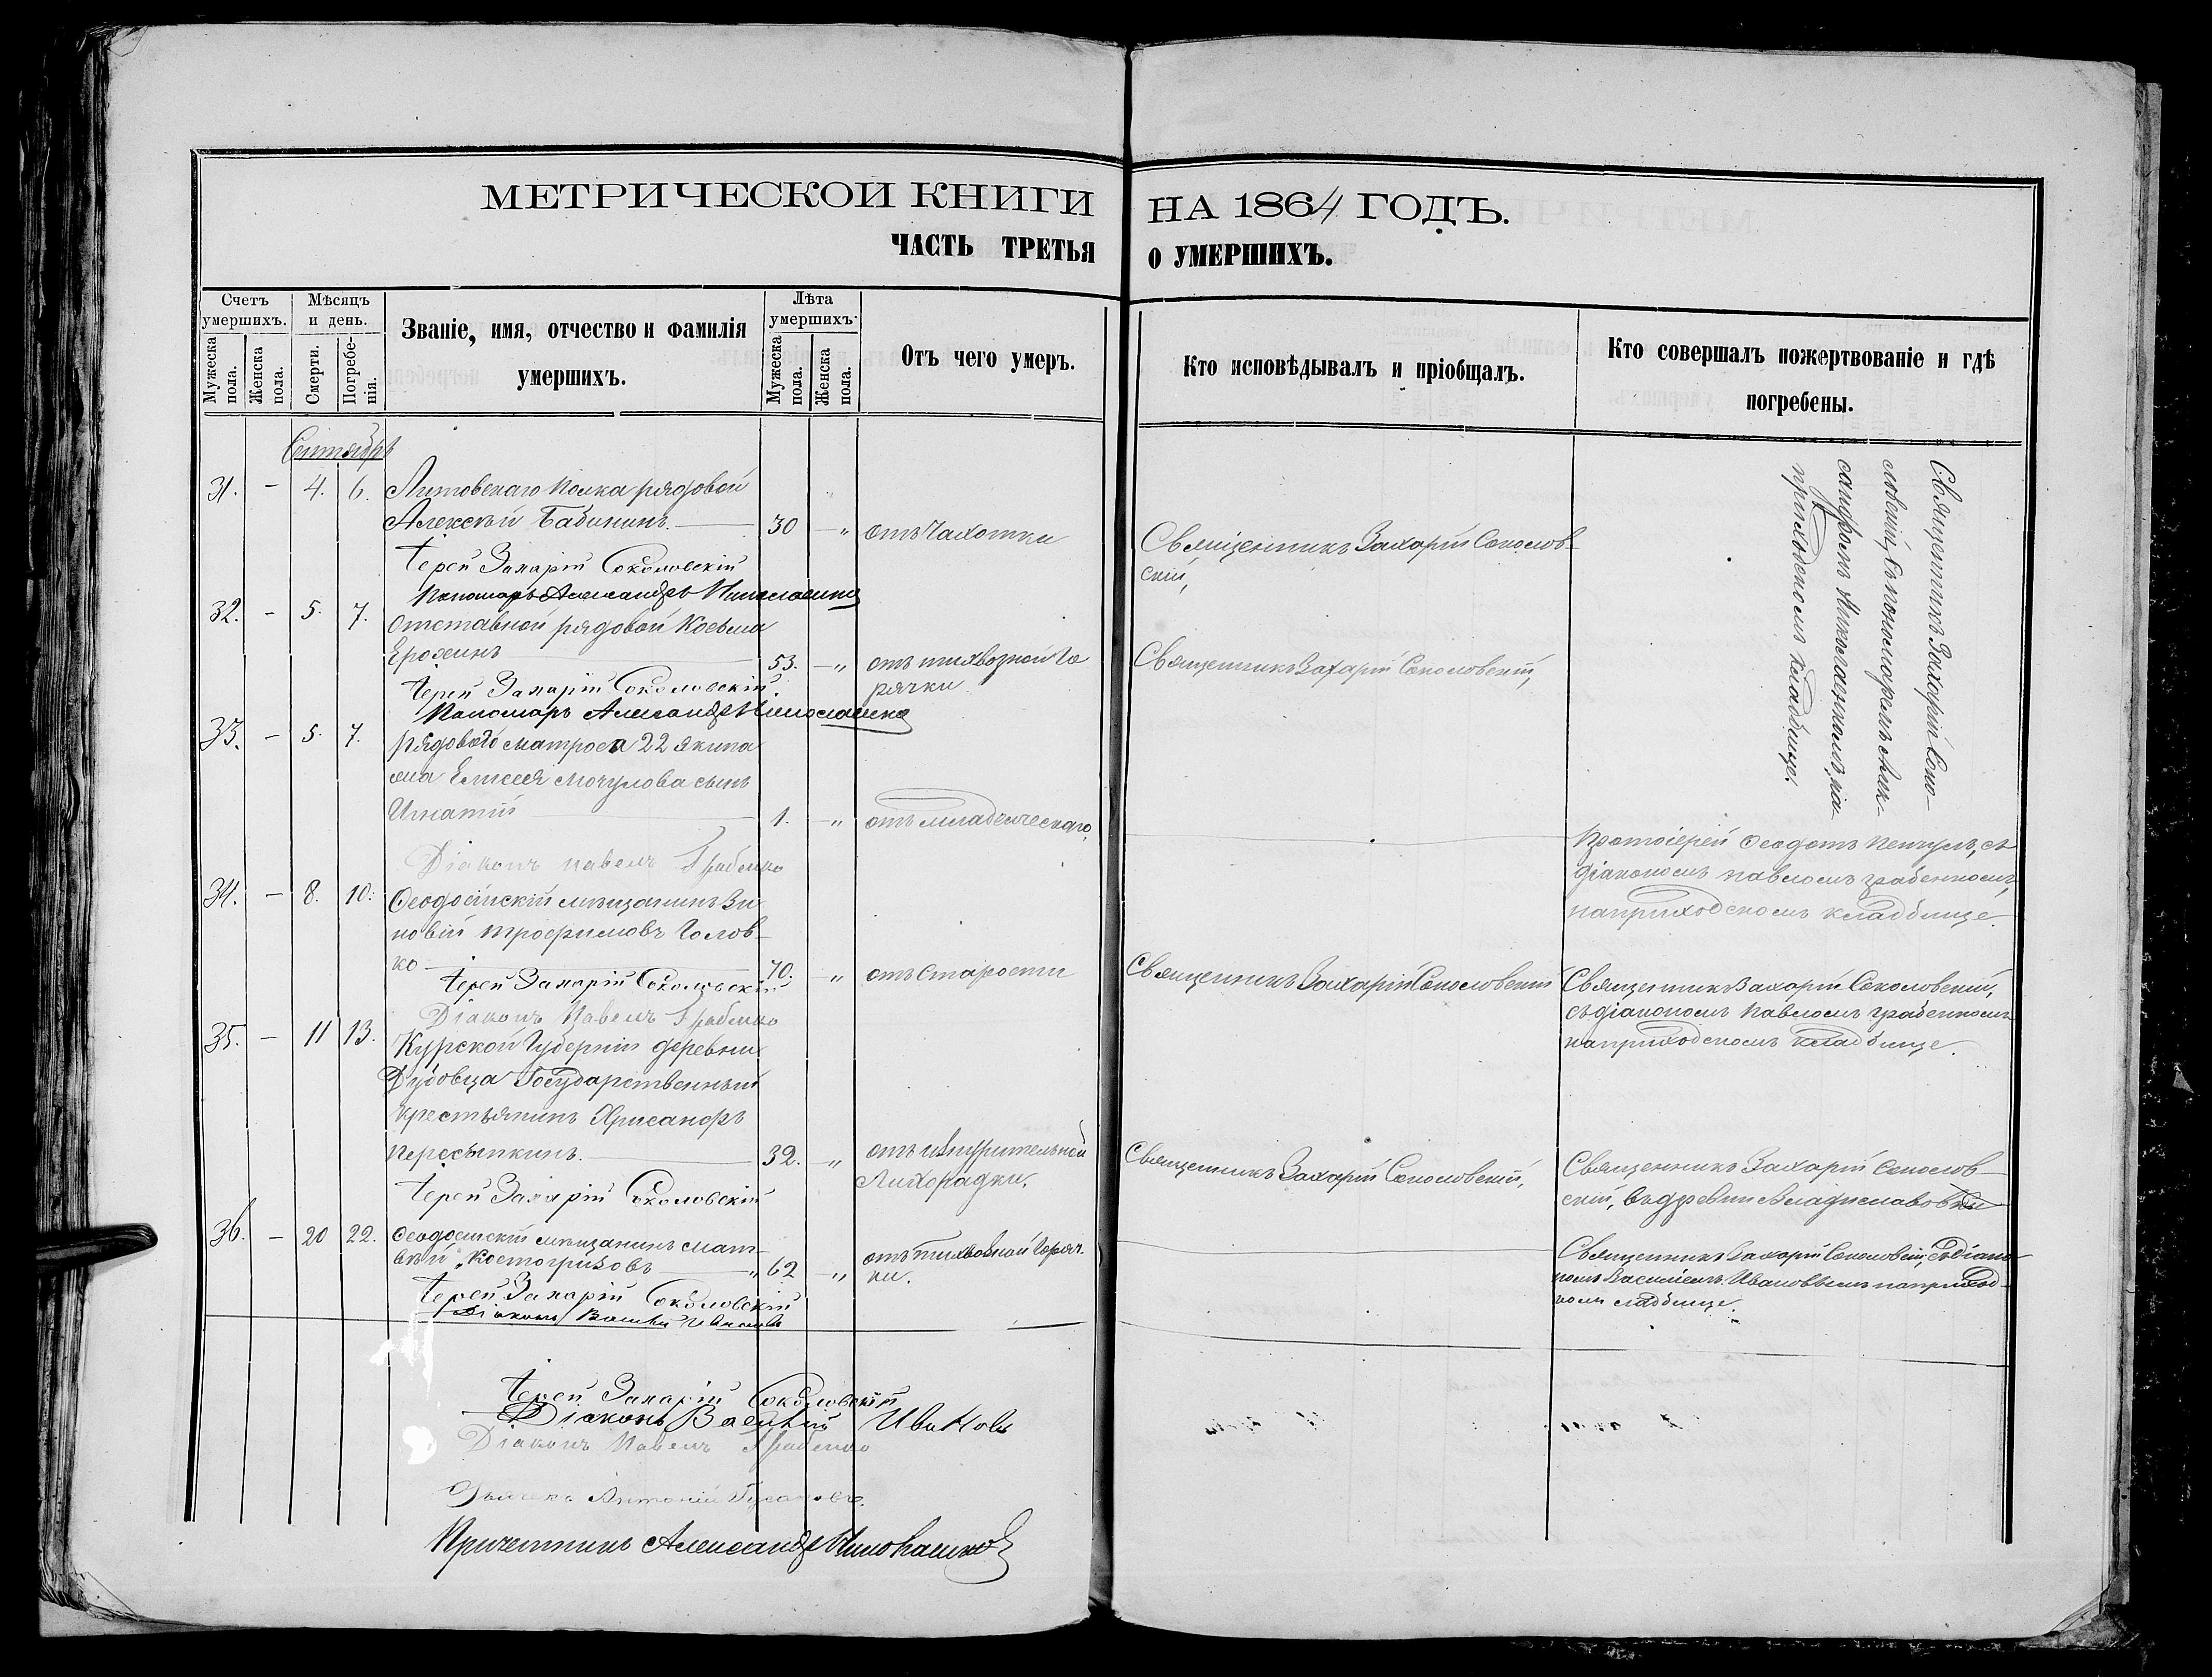 МЕТРИЧЕСКОЙ КНИГИ НА 1864 ГОДЪ.
ЧАСТЬ ТРЕТЬЯ О УМЕРШИХЪ.
Счетъ умершихъ.
Мужеска пола.
Женска пола.
Мѣсяцъ и день.
Смерти.
Погребенія.
Званіе, имя, отчество и фамилія
умершихъ.
Лѣта умершихъ.
Мужеска пола.
Женска пола.
Отъ чего умеръ.
Кто исповѣдывалъ и пріобщалъ.
Кто совершалъ пожертвованіе и гдѣ
погребены.
Сентябрь
31. – 4. 6. Литовскаго полка рядовой
Алексѣй Бабинин. 30 – „ отъ чахотки
Священникъ Захарій Соколов-
скій,
Священникъ Захарій Соко-
ловскій, съ пономаремъ Алек-
сандромъ на
приходскомъ кладбище.
Іерей Захарій Соколовскій
Пономарь Александръ
32. – 5. 7. Отставной рядовой Косьма
Ерохинъ 53. – „ отъ тихвозной го
рячки
Священникъ Захарій Соколовскій,
Іерей Захарій Соколовскій.
Пономарь Александръ
33. – 5. 7. рядоваго матроса 22 экипа
жа Елисея Мочулова сынъ
Игнатій 1. – „ отъ младенческаго.
Протоіерей Ѳеодотъ съ
діакономъ Павломъ Грабенкомъ,
на приходскомъ кладбище.
Діаконъ Павелъ Грабенко
34. – 8. 10. Ѳеодосійскій мѣщанинъ Зи
новій Трофимовъ Голов-
ко 70. – „ отъ старости
Священникъ Захарій Соколовскій
Священникъ Захарій Соколовскій,
съ діакономъ Павломъ Грабенкомъ
на приходскомъ кладбище.
Іерей Захарій Соколовскій
Діаконъ Павелъ Грабенко
35. – 11 13. Курской Губерніи деревни
Дубовца Государственный
крестьянинъ Хрисанфъ
Пересыпкинъ. 32. – „ отъ изнурительной
Лихорадки.
Священникъ Захарій Соколовскій,
Священникъ Захарій Соколов-
скій, въ деревни Владиславовки
Іерей Захарій Соколовскій
36. – 20 22. Ѳеодосійскій мѣщанинъ Мат-
вѣй „Костогризовъ „ 62 – „ отъ тихвозной горяч-
ки.
Священникъ Захарій Соколовскій, съ діако-
номъ Василіемъ Ивановымъ на приход-
комъ кладбище.
Іерей Захарій Соколовскій
Діаконъ Василій Ивановъ
Іерей Захарій Соколовскій
Діаконъ Василій Ивановъ
Діаконъ Павелъ Грабенко
Дьячекъ Антоній
Причетникъ Александръ